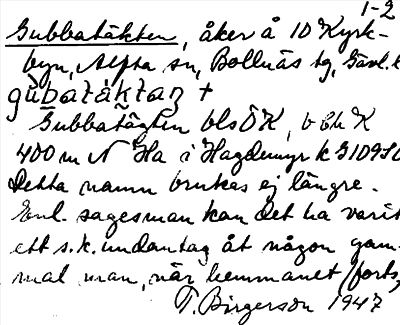 1-2
Gubbatäkten, åker å 10 Kyrk-
byn, Alfta sn, Bollnäs tg, Gävl. l
gùbatáktaṇ +
Gubbatägten bls ÖK, b bh K
400 m N Ha i Hagdemyr k G109SO
Detta namn brukas ej längre.
Enl. sagesman kan det ha varit
ett s.k. undantag åt någon gam-
mal man, när hemmanet (forts,
T. Birgerson 1947